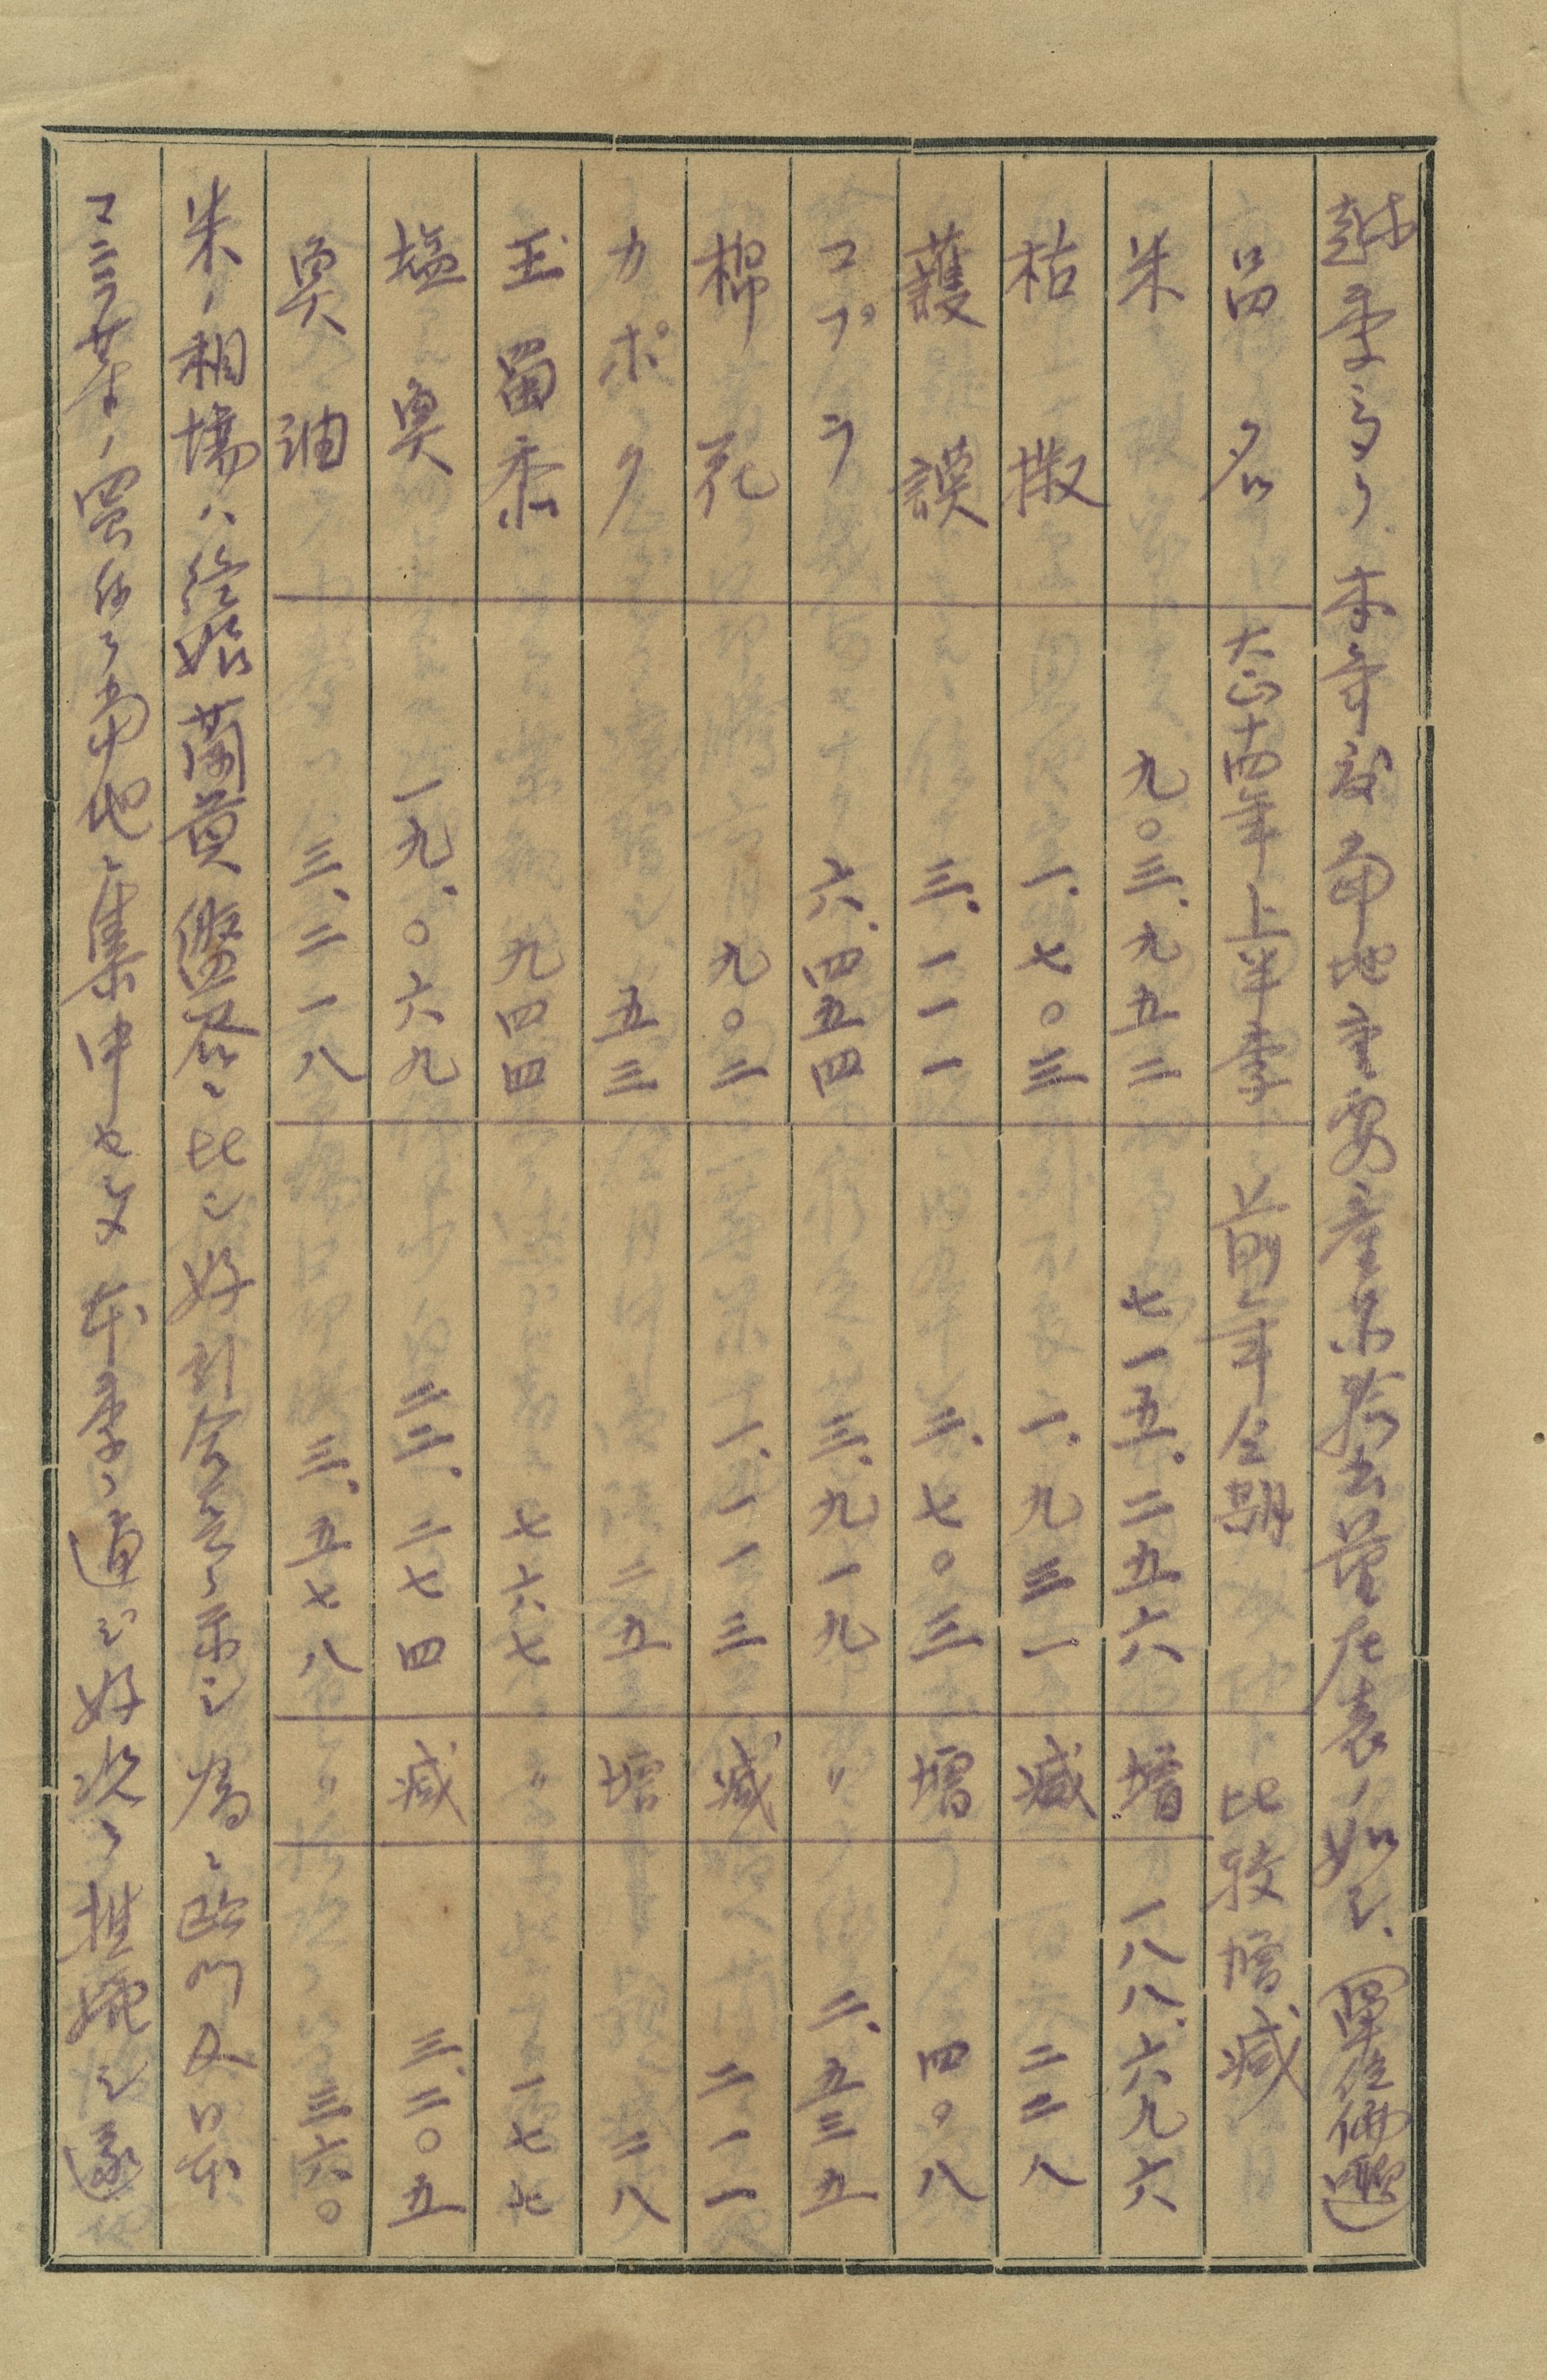 趣キアリ、本年度当地主要産品輸出量左表ノ如シ、(単位佛噸)
品名 大正十四年上半季 前年仝期 比較増減
米 九〇三、九五二 七一五、二五六 増 一八八、六九六
枯椒 一、七〇三 一、九三一 減 二二八
護謨 三、一一一 二、七〇三 増 四〇八
コプラ 六、四五四 三、九一九 〃 二、五三五
棉花 九〇二 一、一一三 減 二一一
カポク 五三 二五 増 二八
玉蜀黍 九四四 七六七 〃 一七七
塩魚 一九、〇六九 二二、二七四 減 三、二〇五
魚油 三、二一八 三、五七八 〃 三六〇
米ノ相場ハ終始蘭貢盤谷ニ比シ好割合ヲ示シ為ニ欧州及日本
ヨリ ノ買付ヲ当地ニ集中セシメ本季ヲ通シ好況ヲ持続シ遂